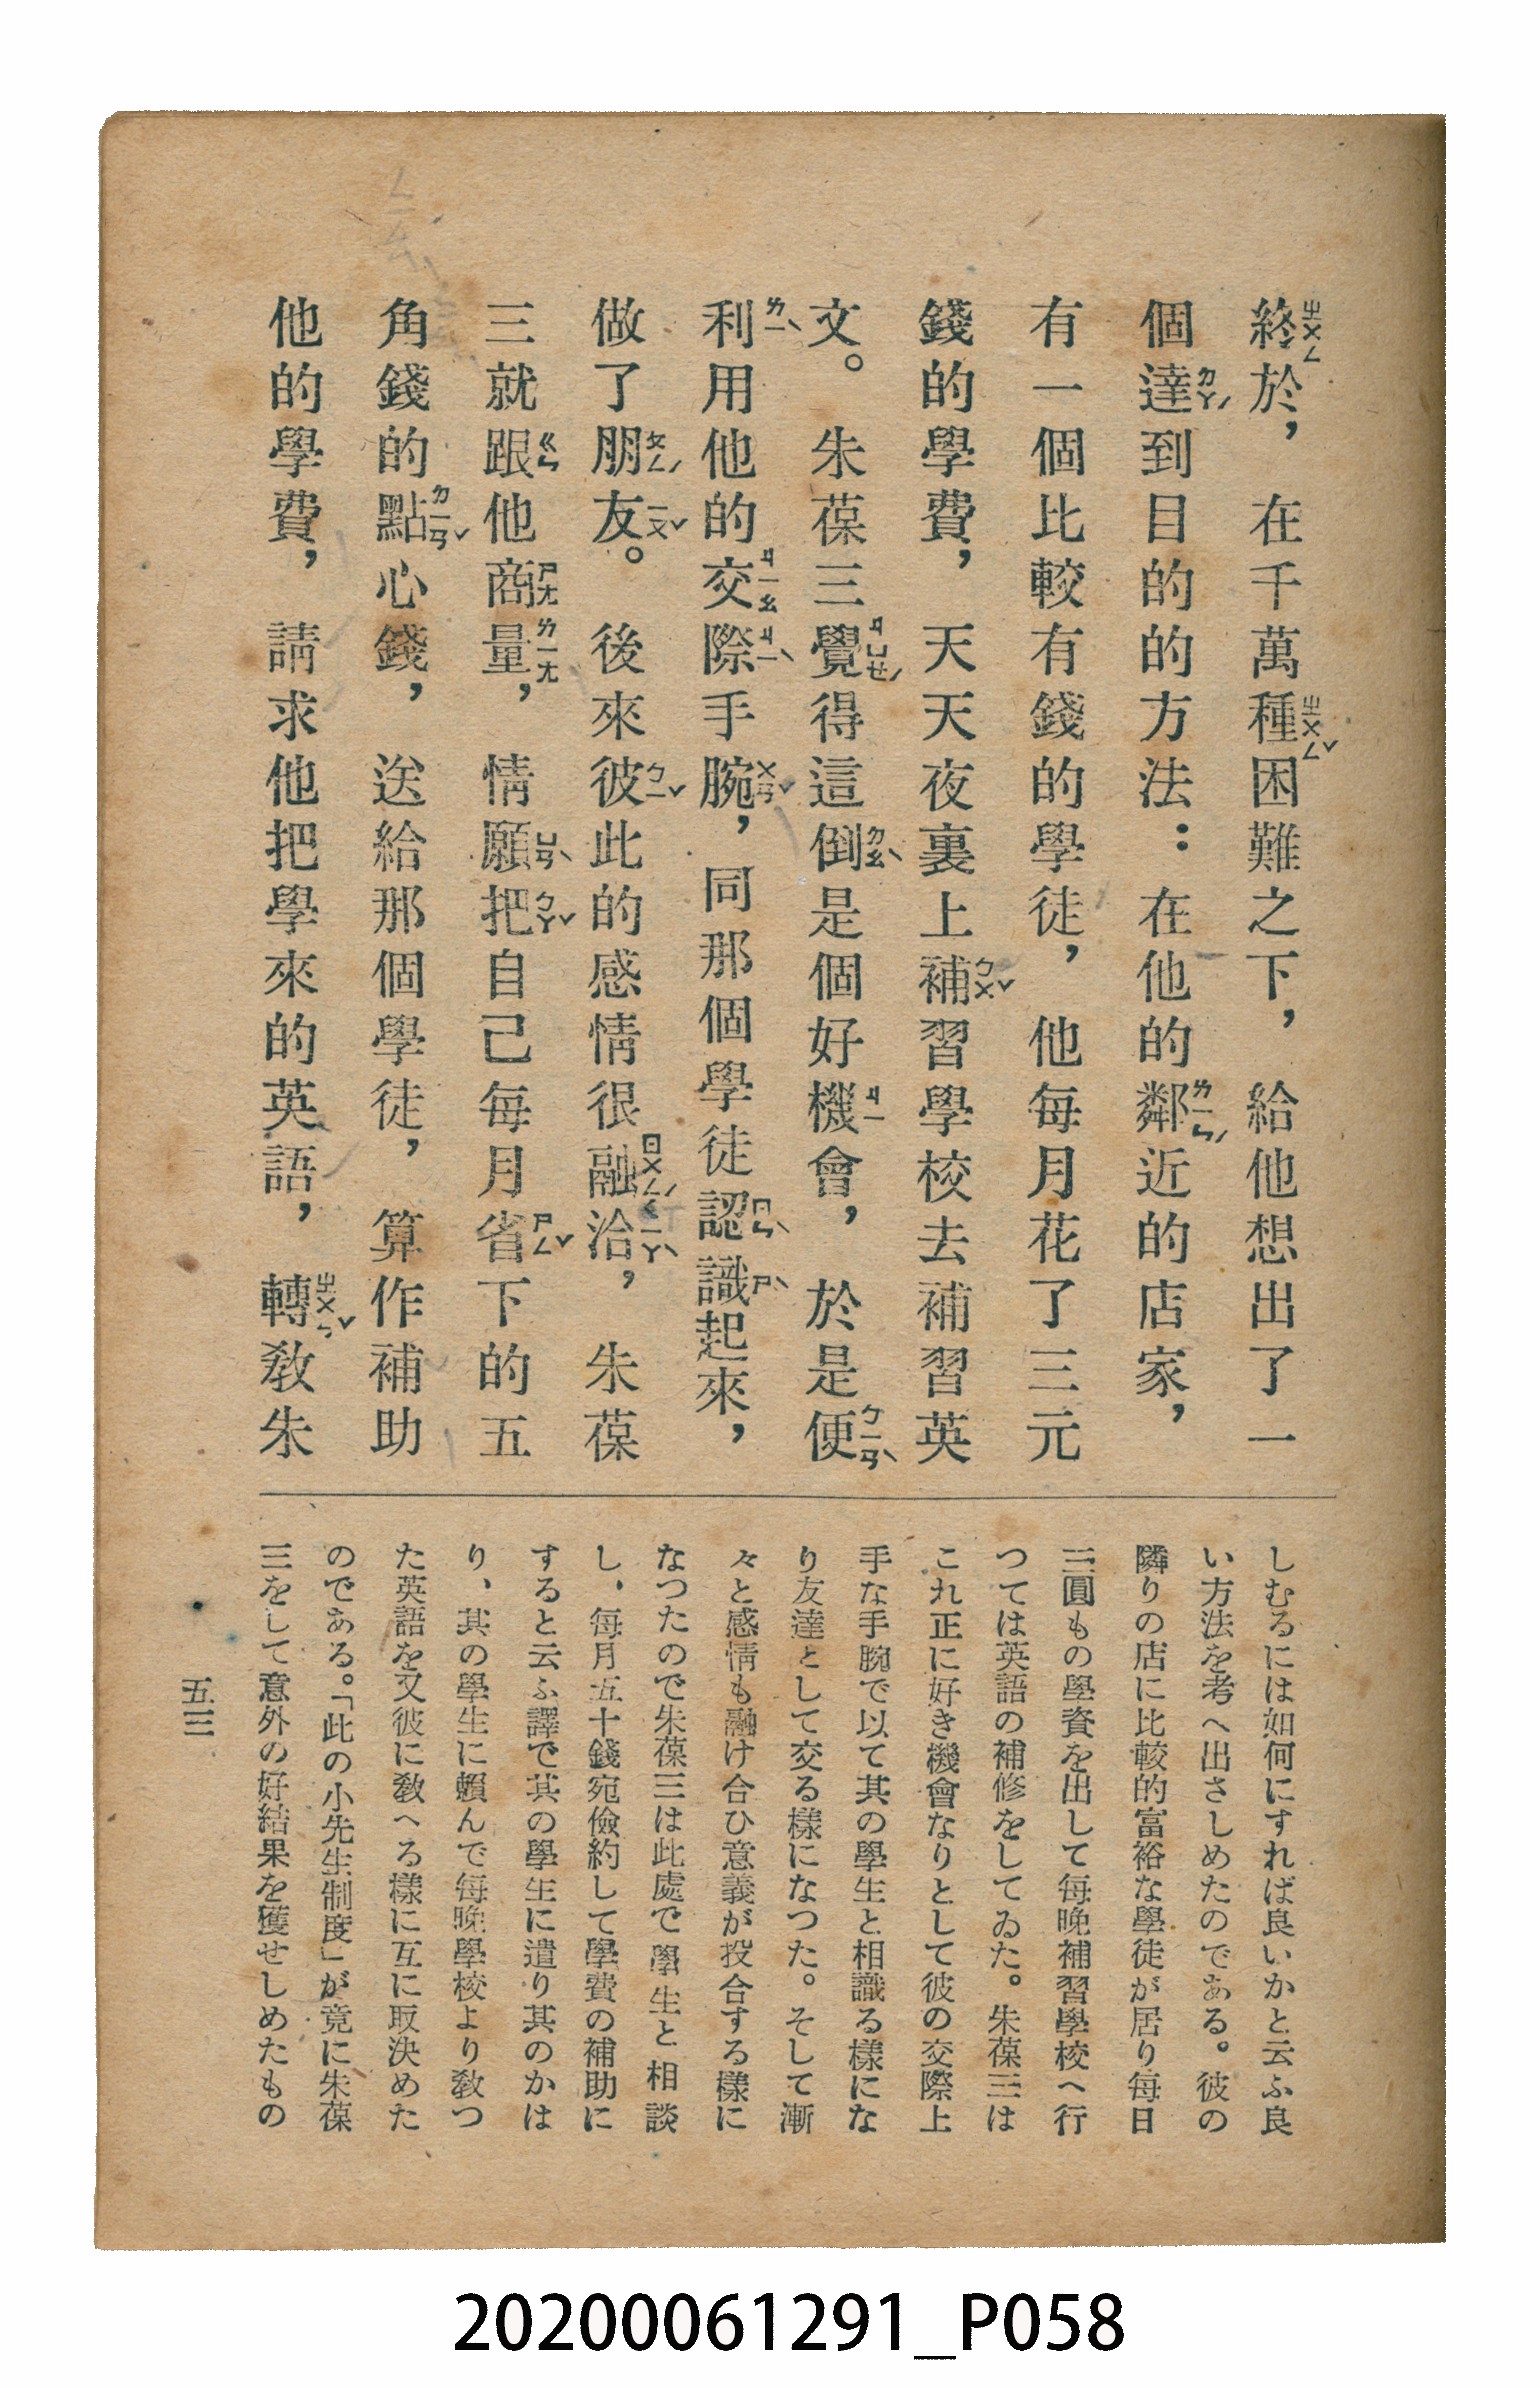 終於,在千萬種困難之下,給他想出了一
個達到目的的方法:在他的鄰近的店家,
有一個比較有錢的學徒,他每月花了三元
錢的學費,天天夜裏上補習學校去補習英
文。朱葆三覺得這倒是個好機會,於是便
利用他的交際手腕,同那個學徒認識起來,
做了朋友。後來彼此的感情很融洽,朱葆
三就跟他商量,情願把自己每月省下的五
角錢的點心錢,送給那個學徒,算作補助
他的學費,請求他把學來的英語,轉教朱
しむるには如何にすれば良いかと云ふ良
い方法を考へ出さしめたのである。彼の
隣りの店に比較的富裕な學徒が居り毎日
三圓もの學資を出して毎晩補習學校へ行
つては英語の補修をしてゐた。朱葆三は
これ正に好き機會なりとして彼の交際上
手な手腕で以て其の學生と相識る樣にな
り友達として交る樣になつた。そして漸
々と感情も融け合ひ意義が投合する樣に
なつたので朱葆三は此處で學生と相談
し,毎月五十錢宛儉約して學費の補助に
すると云ふ譯で其の學生に遣り其のかは
り、其の學生に賴んで毎晩學校より敎つ
た英語を又彼に敎へる樣に互に取決めた
のである。「此の小先生制度」が竟に朱葆
三をして意外の好結果を獲せしめたもの
五三
20200061291_P058